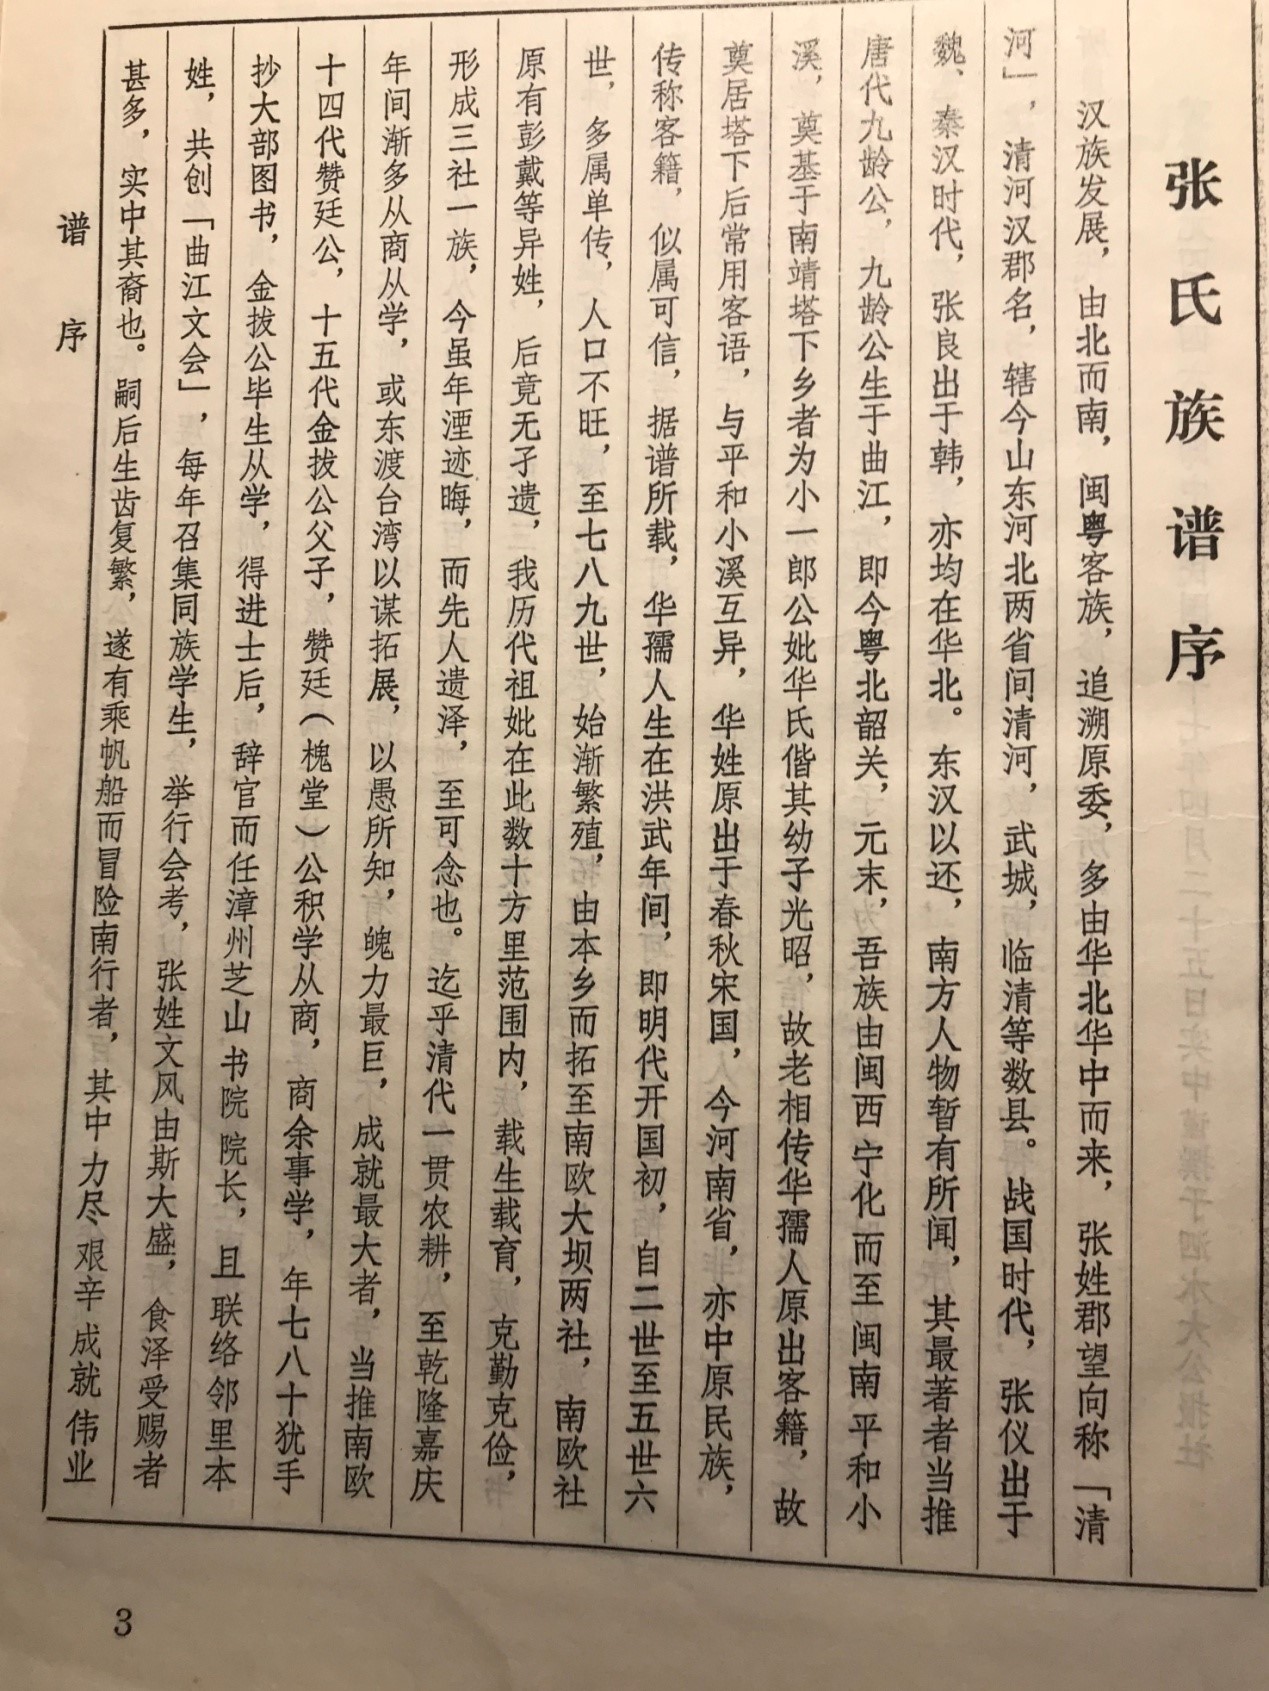 张氏族谱序
汉族发展，由北而南，闽粤客族，追溯原委，多由华北华中而来，张姓郡望向称「清
河」，清河汉郡名，辖今山东河北两省间清河，武城，临清等数县。战国时代，张仪出于
魏、秦汉时代，张良出于韩，亦均在华北。东汉以还，南方人物暂有所闻，其最著者当推
唐代九龄公，九龄公生于曲江，即今粤北韶关，元末，吾族由闽西宁化而至闽南平和小
溪，奠基于南靖塔下乡者为小一郎公妣华氏偕其幼子光昭，故老相传华孺人原出客籍，故
奠居塔下后常用客语，与平和小溪互异，华姓原出于春秋宋国，今河南省，亦中原民族，
传称客籍，似属可信，据谱所载，华孺人生在洪武年间，即明代开国初，自二世至五世六
世，多属单传，人口不旺，至七八九世，始渐繁殖，由本乡而拓至南欧大坝两社，南欧社
原有彭戴等异姓，后竟无孑遗，我历代祖妣在此数十方里范围内，载生载育，克勤克俭，
形成三社一族，今虽年湮迹晦，而先人遗泽，至可念也。迄乎清代一贯农耕，至乾隆嘉庆
年间渐多从商从学，或东渡台湾以谋拓展，以愚所知，魄力最巨，成就最大者，当推南欧
十四代赞廷公，十五代金拔公父子，赞廷（槐堂）公积学从商，商余事学，年七八十犹手
抄大部图书，金拔公毕生从学，得进士后，辞官而任漳州芝山书院院长，且联络邻里本
姓，共创「曲江文会」，每年召集同族学生，举行会考，张姓文风由斯大盛，食泽受赐者
甚多，实中其裔也。嗣后生齿复繁，遂有乘帆船而冒险南行者，其中力尽艰辛成就伟业
谱序
3